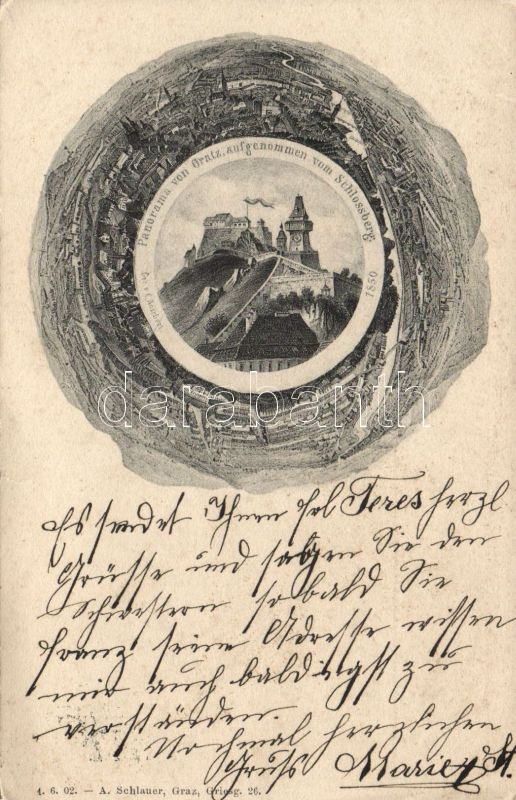 Panorama von Gratz, aufgenommen vom Schlossberg, 1830
darabanth
Es sendet Ihnen frl Teres herzl.
Grüsse und sagen Sie den
Schwestern so bald Sie
franz seine Adresse wissen
mir auch baldingst zu
verständen.
Nochmal herzlichen
Gruss Marie
1. 6. 02. — A. Schlauer, Graz, Griesg. 26.